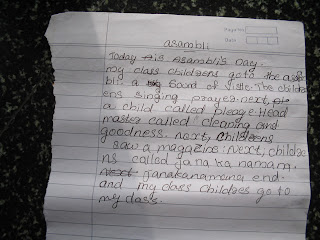 asambli
Today Ais Asambli's Day.
my class childrens goto the asem
bli a board of visle. The childr
ens singing prayer. next,
a child called pleage. Head
master called cleaning and
goodness. next, Childrens
saw a magazine. Next, childre
ns called jana ka namam.
Next janakanamana end.
and my class childres go to
my class.